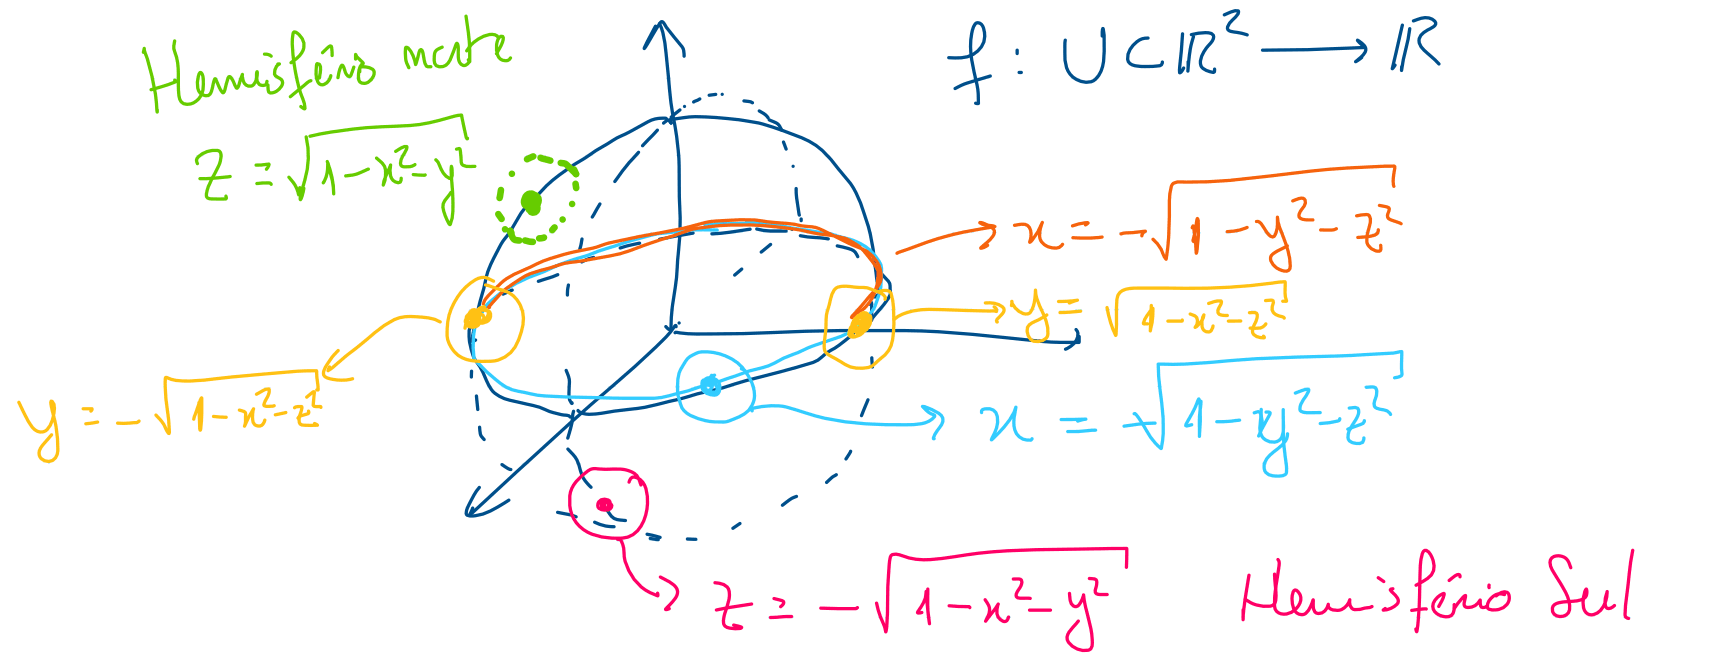 Hemisfério norte
z = √(1-x²-y²)
f : U ⊂ ℝ² → ℝ
x = -√(1-y²-z²)
y = √(1-x²-z²)
y = -√(1-x²-z²)
x = √(1-y²-z²)
z = -√(1-x²-y²)
Hemisfério Sul